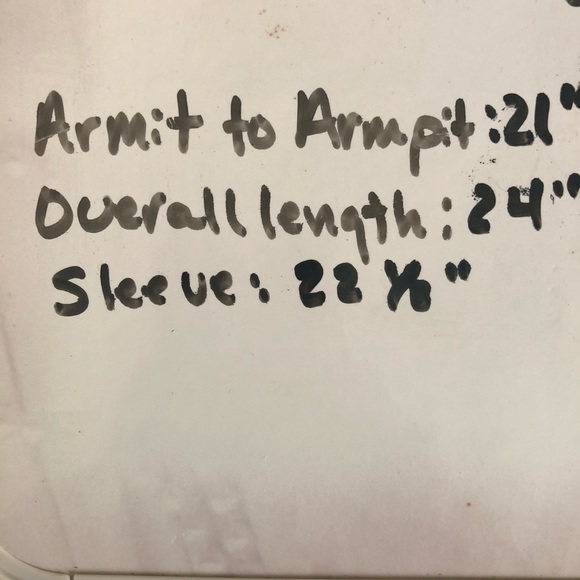 Armit to Armpit: 21"
Overall length: 24"
Sleeve: 22 ½"